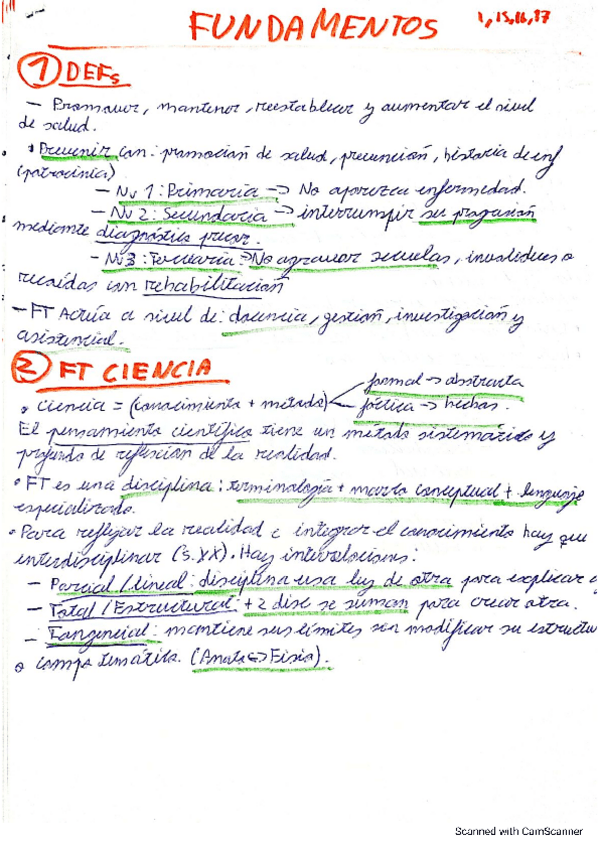 FUNDAMENTOS 1,15,16,17
1 DEFs
- Promover, mantener, reestablecer y aumentar el nivel
de salud.
• Prevenir con: promoción de salud, prevención, historia de enf
(patrocinia)
- Nv 1: Primaria -> No aparezca enfermedad.
- Nv 2: Secundaria -> interrumpir su progresión
mediante diagnóstico precoz.
- Nv3: Terciaria -> No agravar secuelas, invalideces o
recaídas con rehabilitación
- FT Actúa a nivel de: docencia, gestión, investigación y
asistencial.
2 FT CIENCIA
• Ciencia = (conocimiento + método) < formal -> abstracta
fáctica -> hechos.
El pensamiento científico tiene un método sistemático y
profundo de reflexión de la realidad.
• FT es una disciplina: terminología + marco conceptual + lenguaje
especializado.
• Para reflejar la realidad e integrar el conocimiento hay que
interdisciplinar (S. XX). Hay interrelaciones:
- Parcial / lineal: disciplina usa luz de otra para explicar
- Total / Estructural: + 2 disc se suman para crear otra.
- Tangencial: mantiene sus límites sin modificar su estructu
o campo temático. (Anato <-> Fisio).
Scanned with CamScanner